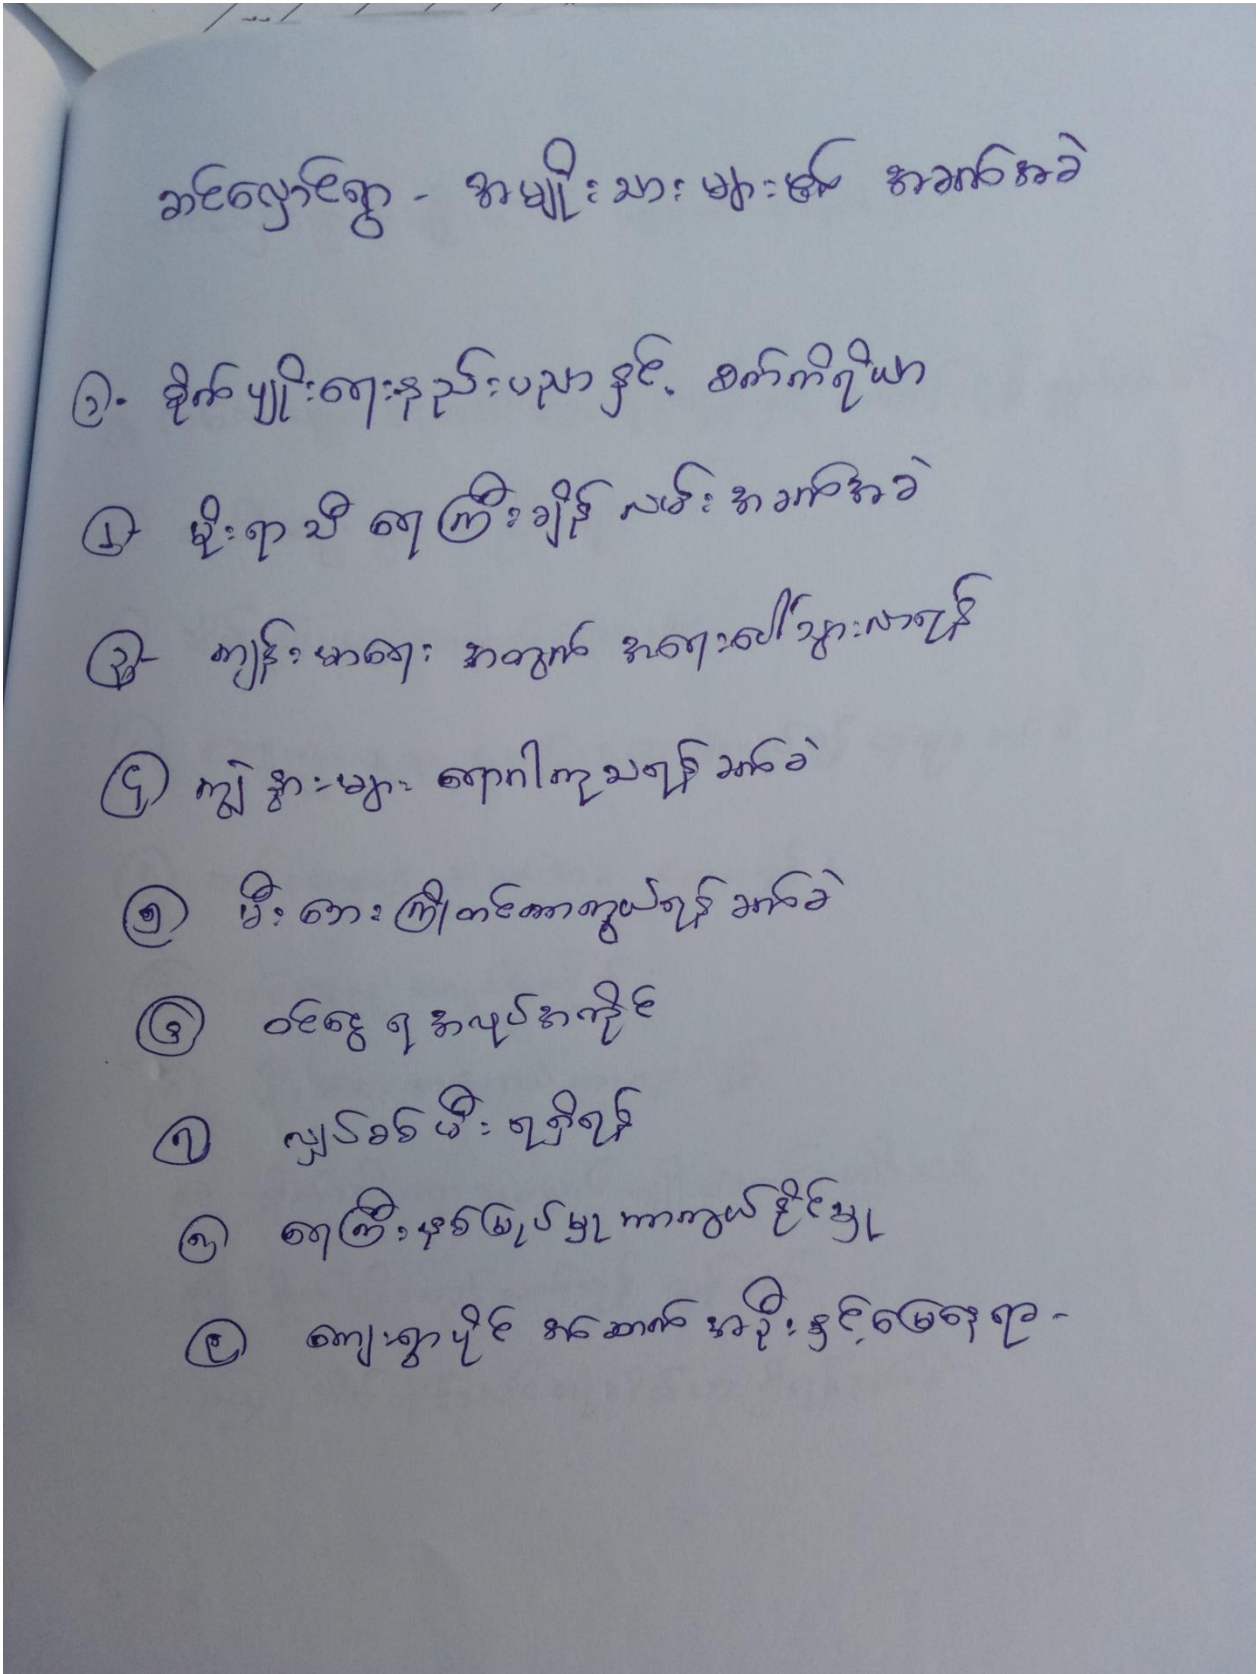 ဆင်လှောင်ရွာ - အမျိုးသားများ၏ အခက်အခဲ
၁- စိုက်ပျိုးရေးနည်းပညာနှင့် စက်ကိရိယာ
၂- မိုးရာသီ ရေကြီးချိန် လမ်းအခက်အခဲ
၃- ကျန်းမာရေး အတွက် အရေးပေါ်သွားလာရန်
၄ ကျွဲနွားများ ရောဂါကုသရန် ခက်ခဲ
၅ မီးဘေးကြိုတင်ကာကွယ်ရန် ခက်ခဲ
၆ ဝင်ငွေ ရ အလုပ်အကိုင်
၇ လျှပ်စစ်မီး ရရှိရန်
၈ ရေကြီးနစ်မြုပ်မှု ကာကွယ်နိုင်မှု
၉ ကျေးရွာပိုင် အဆောက်အဦးနှင့်မြေနေရာ-